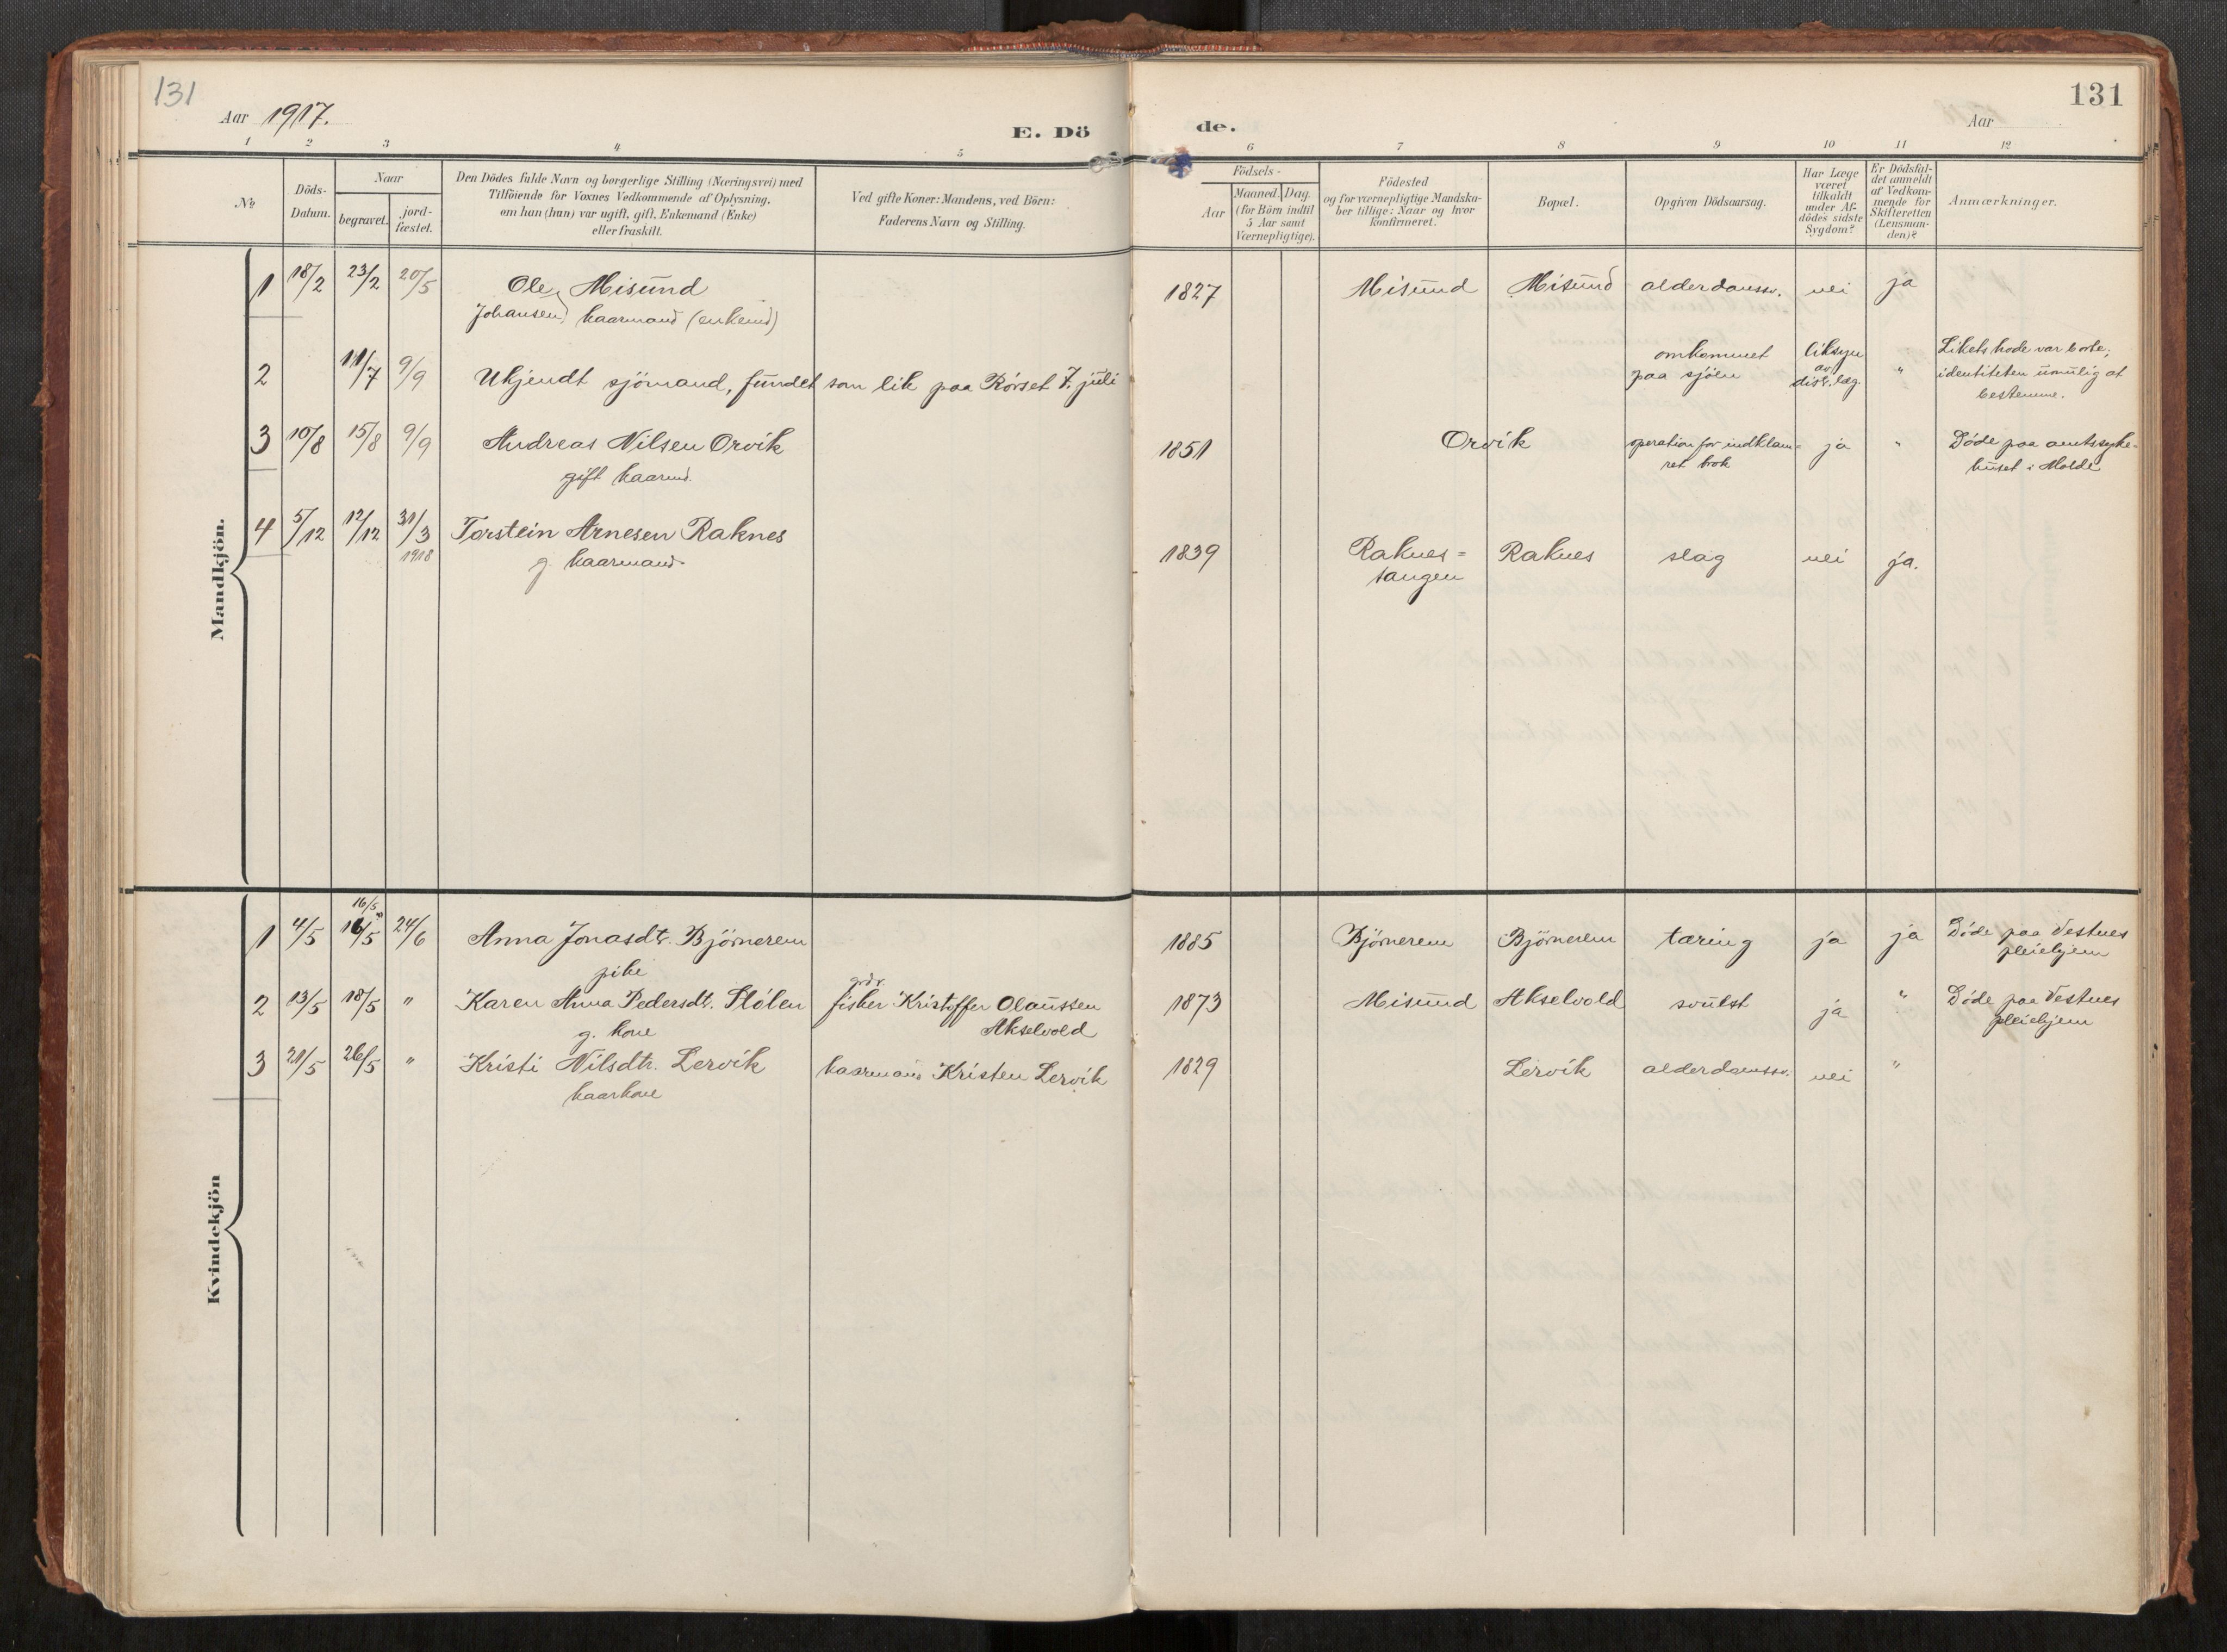 131
131
Aar 1917.
E. Dö
de.
Aar
1 2 3 4 5 6 7 8 9 10 11 12
№
Döds-
Datum.
Naar
begravet.
jord-
fæstet.
Den Dödes fulde Navn og borgerlige Stilling (Næringsvei) med
Tilföiende for Voxnes Vedkommende af Oplysning,
om han (hun) var ugift, gift, Enkemand (Enke)
eller fraskilt.
Ved gifte Koner: Mandens, ved Börn:
Faderens Navn og Stilling.
Födsels-
Aar
Maaned. Dag.
(for Börn indtil
5 Aar samt
Værnepligtige).
Födested
og for værnepligtige Mandska-
ber tillige: Naar og hvor
konfirmeret.
Bopæl.
Opgiven Dödsaarsag.
Har Læge
været
tilkaldt
under Af-
dödes sidste
Sygdom?
Er Dödsfal-
det anmeldt
af Vedkom-
mende for
Skifteretten
(Lensman-
den)?
Anmærkninger.
Mandkjön.
1 18/2 23/2 20/5 Ole Misund 1827 Misund Misund alderdomssv. nei ja
Johansen, kaarmand (enkemd)
2 11/7 9/9 Ukjendt sjömand, fundet som lik paa Rörset 7. juli omkommet paa sjöen liksyn av distr. læg. "
Likets hode var borte,
identiteten umulig at
bestemme.
3 10/8 15/8 9/9 Andreas Nilsen Orvik 1851 Orvik operation for indklem- ja " Döde paa amtssyke-
gift kaarmd. ret brok huset i Molde
4 5/12 12/12 31/3 Torstein Arnesen Raknes 1839 Raknes- Raknes slag nei ja.
1918 g. kaarmand tangen
Kvindekjön
16/5
1 4/5 16/5 24/6 Anna Jonasdtr. Björnerem 1885 Björnerem Björnerem tæring ja ja Döde paa Vestnes
pike pleiehjem
2 13/5 18/5 " Karen Anna Pedersdtr. Stölen fisker Kristoffer Olaussen 1873 Misund Akselvold svulst ja " Döde paa Vestnes
g. kone Akselvold pleiehjem
3 21/5 26/5 " Kristi Nilsdtr. Lervik kaarmand Kristen Lervik 1829 Lervik alderdomssv. nei "
kaarkone